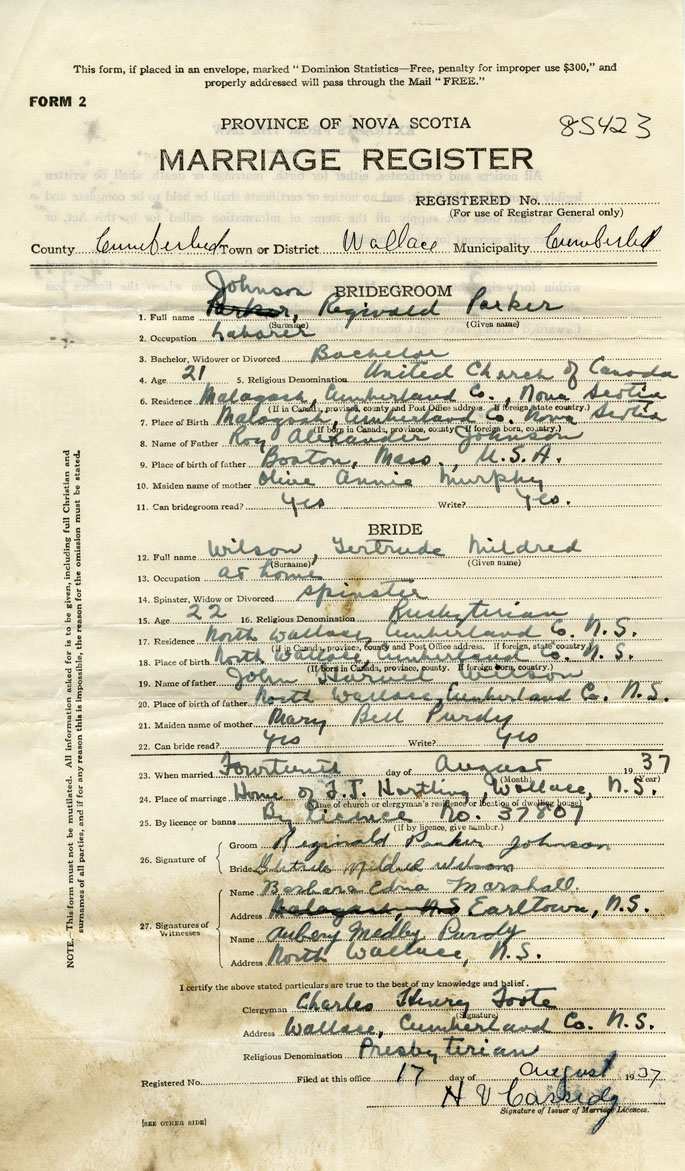 This form, if placed in an envelope, marked "Dominion Statistics—Free, penalty for improper use $300," and
properly addressed will pass through the Mail "FREE."
FORM 2
PROVINCE OF NOVA SCOTIA
85423
MARRIAGE REGISTER
REGISTERED No.
(For use of Registrar General only)
County Cumberland Town or District Wallace Municipality Cumberland
BRIDEGROOM
Johnson
1. Full name Parker, Reginald Parker
(Surname) (Given name)
2. Occupation Laborer
3. Bachelor, Widower or Divorced Bachelor
4. Age 21 5. Religious Denomination United Church of Canada
6. Residence Malagash, Cumberland Co., Nova Scotia
(If in Canada, province, county and Post Office address. If foreign, state country.)
7. Place of Birth Malagash, Cumberland Co. Nova Scotia
(If born in Canada, province, county. If foreign born, country.)
8. Name of Father Roy Alexander Johnson
9. Place of birth of father Boston, Mass., U.S.A.
10. Maiden name of mother Olive Annie Murphy
11. Can bridegroom read? Yes Write? Yes.
BRIDE
12. Full name Wilson, Gertrude Mildred
(Surname) (Given name)
13. Occupation at home
14. Spinster, Widow or Divorced Spinster
15. Age 22 16. Religious Denomination Presbyterian
17. Residence North Wallace, Cumberland Co. N.S.
(If in Canada, province, county and Post Office address. If foreign, state country)
18. Place of birth North Wallace, Cumberland Co. N.S.
(If born in Canada, province, county. If foreign born, country.)
19. Name of father John Wilson
20. Place of birth of father North Wallace, Cumberland Co. N.S.
21. Maiden name of mother Mary Bell Purdy
22. Can bride read? Yes Write? Yes
23. When married Fourteenth day of August 1937
(Month) (Year)
24. Place of marriage Home of F.T. Hartling, Wallace, N.S.
(Name of church or clergyman's residence or location of dwelling house)
25. By licence or banns By Licence No. 37807
(If by licence, give number.)
26. Signature of
Groom Reginald Parker Johnson
Bride Gertrude Mildred Wilson
27. Signatures of Witnesses
Name Barbara Edna Marshall.
Address Malagash, N.S. Earltown, N.S.
Name Aubery Medley Purdy
Address North Wallace, N.S.
I certify the above stated particulars are true to the best of my knowledge and belief.
Clergyman Charles Henry Foote
(Signature)
Address Wallace, Cumberland Co. N.S.
Religious Denomination Presbyterian
Registered No. Filed at this office 17 day of August 1937
H V Cassidy
Signature of Issuer of Marriage Licences.
[SEE OTHER SIDE]
NOTE.—This form must not be mutilated. All information asked for is to be given, including full Christian and
surnames of all parties, and if for any reason this is impossible, the reason for the omission must be stated.